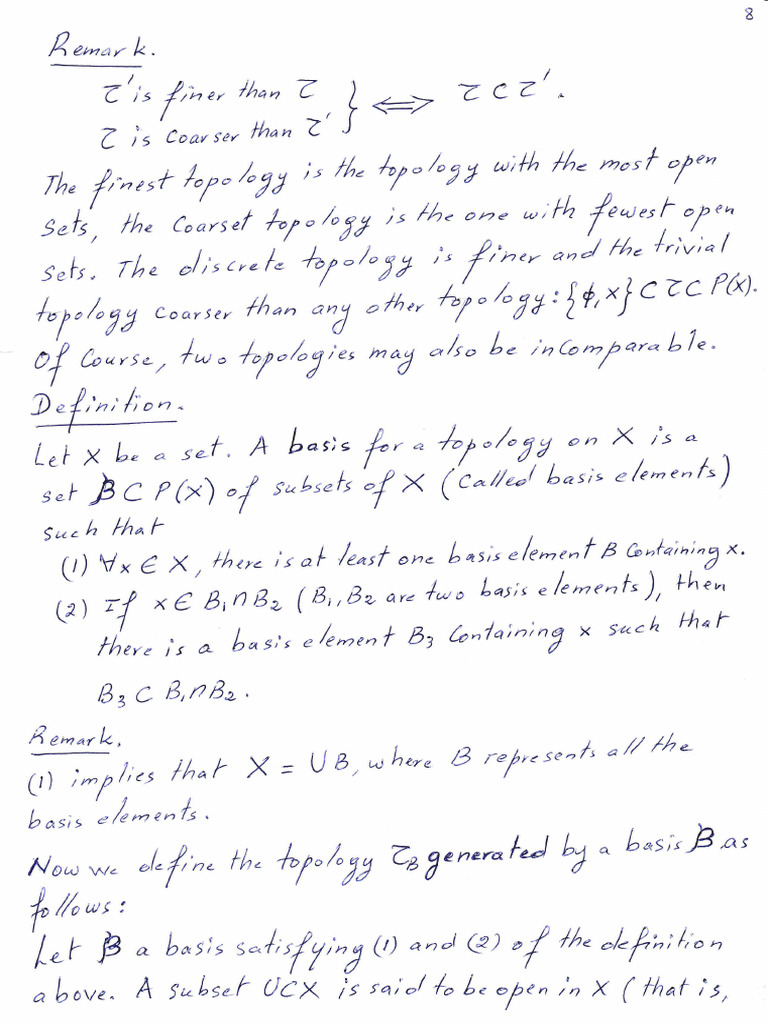 8
Remark.
τ' is finer than τ
τ is coarser than τ' } ⟺ τ ⊂ τ'.
The finest topology is the topology with the most open
sets, the coarset topology is the one with fewest open
sets. The discrete topology is finer and the trivial
topology coarser than any other topology: {ϕ, X} ⊂ τ ⊂ P(X).
Of course, two topologies may also be incomparable.
Definition.
Let X be a set. A basis for a topology on X is a
set 𝓑 ⊂ P(X) of subsets of X (called basis elements)
such that
(1) ∀x ∈ X, there is at least one basis element B containing x.
(2) If x ∈ B₁∩B₂ (B₁, B₂ are two basis elements), then
there is a basis element B₃ containing x such that
B₃ ⊂ B₁∩B₂.
Remark.
(1) implies that X = ∪B, where B represents all the
basis elements.
Now we define the topology τ_B generated by a basis 𝓑 as
follows:
Let 𝓑 a basis satisfying (1) and (2) of the definition
above. A subset U⊂X is said to be open in X (that is,